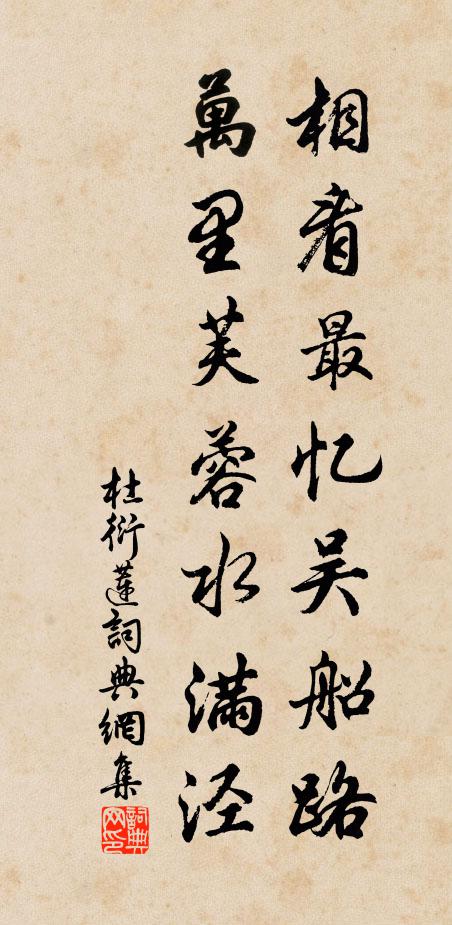 相看最忆吴船路
萬里芙蓉水满泾
杜衍蓮詞典網集
詞典
网印